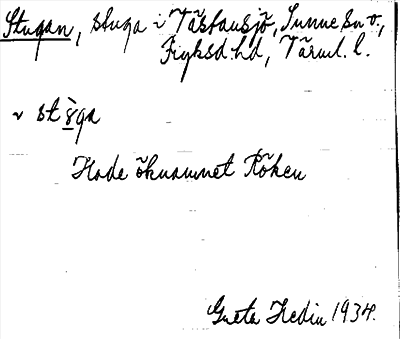 Stugan, stuga i Västansjö, Sunne sn o.,
Fryksd. hd, Värml. l.
v st`ȣga
Hade öknamnet Röken
Greta Hedin 1934.